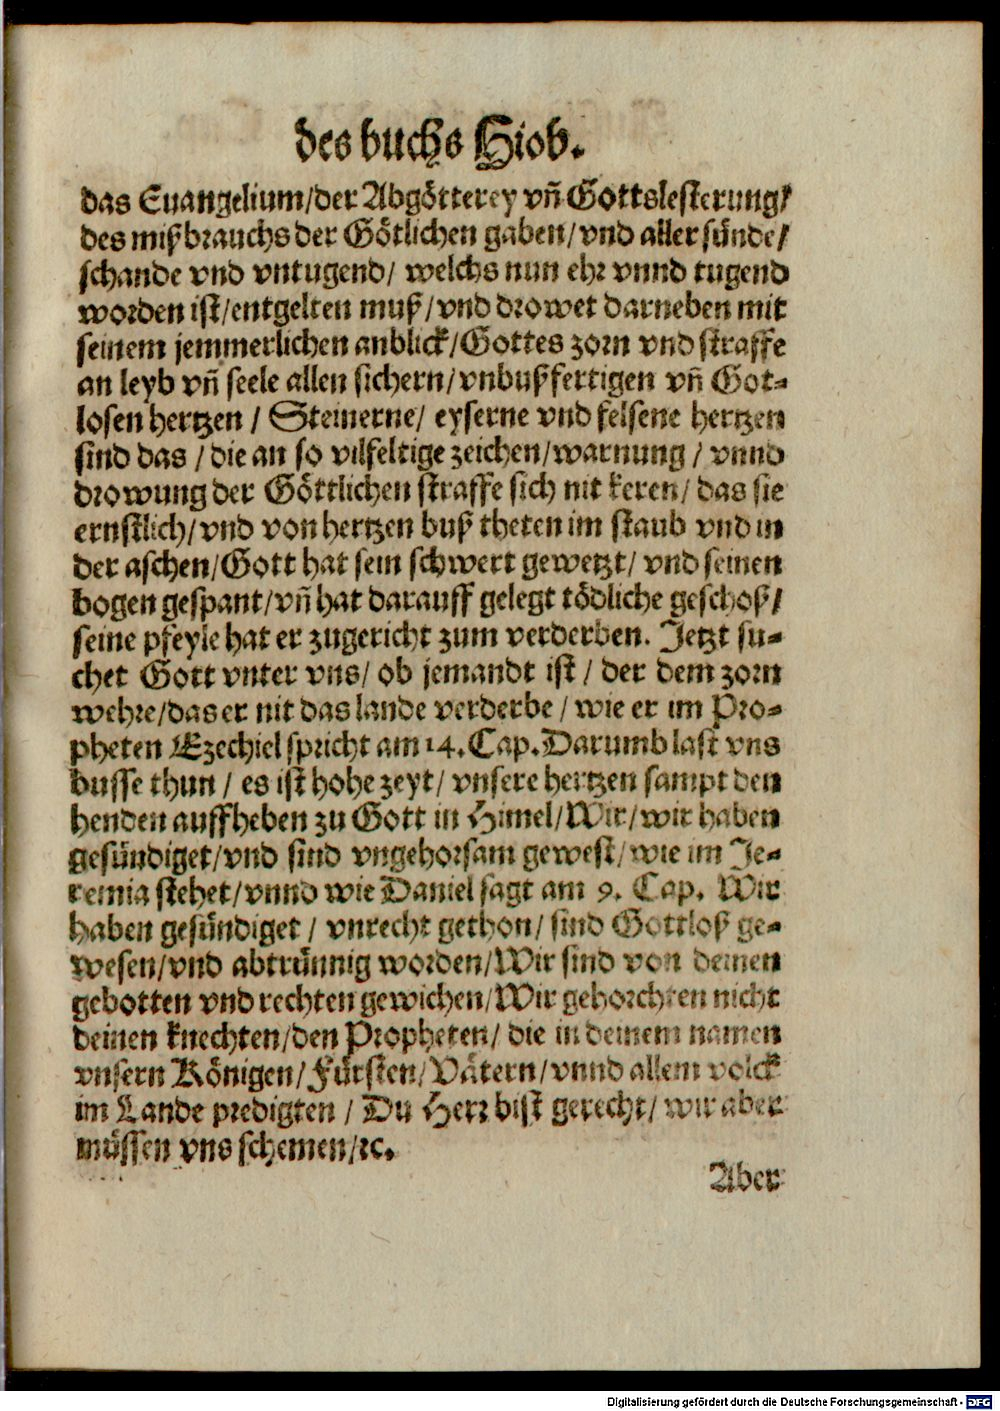 des buchs Hiob.
das Euangelium/der Abgötterey vñ Gottslesterung/
des mißbrauchs der Götlichen gaben/vnd aller sünde/
schande vnd vntugend/ welchs nun ehr vnnd tugend
worden ist/entgelten muß/vnd drowet darneben mit
seinem jemmerlichen anblick/Gottes zorn vnd straffe
an leyb vñ seele allen sichern/vnbußfertigen vñ Got-
losen hertzen / Steinerne/ eyserne vnd felsene hertzen
sind das / die an so vilfeltige zeichen/warnung / vnnd
drowung der Göttlichen straffe sich nit keren/ das sie
ernstlich/vnd von hertzen buß theten im staub vnd in
der aschen/Gott hat sein schwert gewetzt/ vnd seinen
bogen gespant/vñ hat darauff gelegt tödliche geschoß/
seine pfeyle hat er zugericht zum verderben. Jetzt su-
chet Gott vnter vns/ ob jemandt ist / der dem zorn
wehre/das er nit das lande verderbe / wie er im Pro-
pheten Ezechiel spricht am 14. Cap. Darumb last vns
busse thun / es ist hohe zeyt/ vnsere hertzen sampt den
henden auffheben zu Gott in Himel/Wir/wir haben
gesündiget/vnd sind vngehorsam gewest/wie im Je-
remia stehet/vnnd wie Daniel sagt am 9. Cap. Wir
haben gesündiget / vnrecht gethon/ sind Gottloß ge-
wesen/vnd abtrünnig worden/Wir sind von deinen
gebotten vnd rechten gewichen/Wir gehorchten nicht
deinen knechten/den Propheten/ die in deinem namen
vnsern Königen/Fürsten/Vätern/vnnd allem volck
im Lande predigten / Du Herr bist gerecht/ wir aber
müssen vns schemen/ꝛc.
Aber
Digitalisierung gefördert durch die Deutsche Forschungsgemeinschaft - DFG